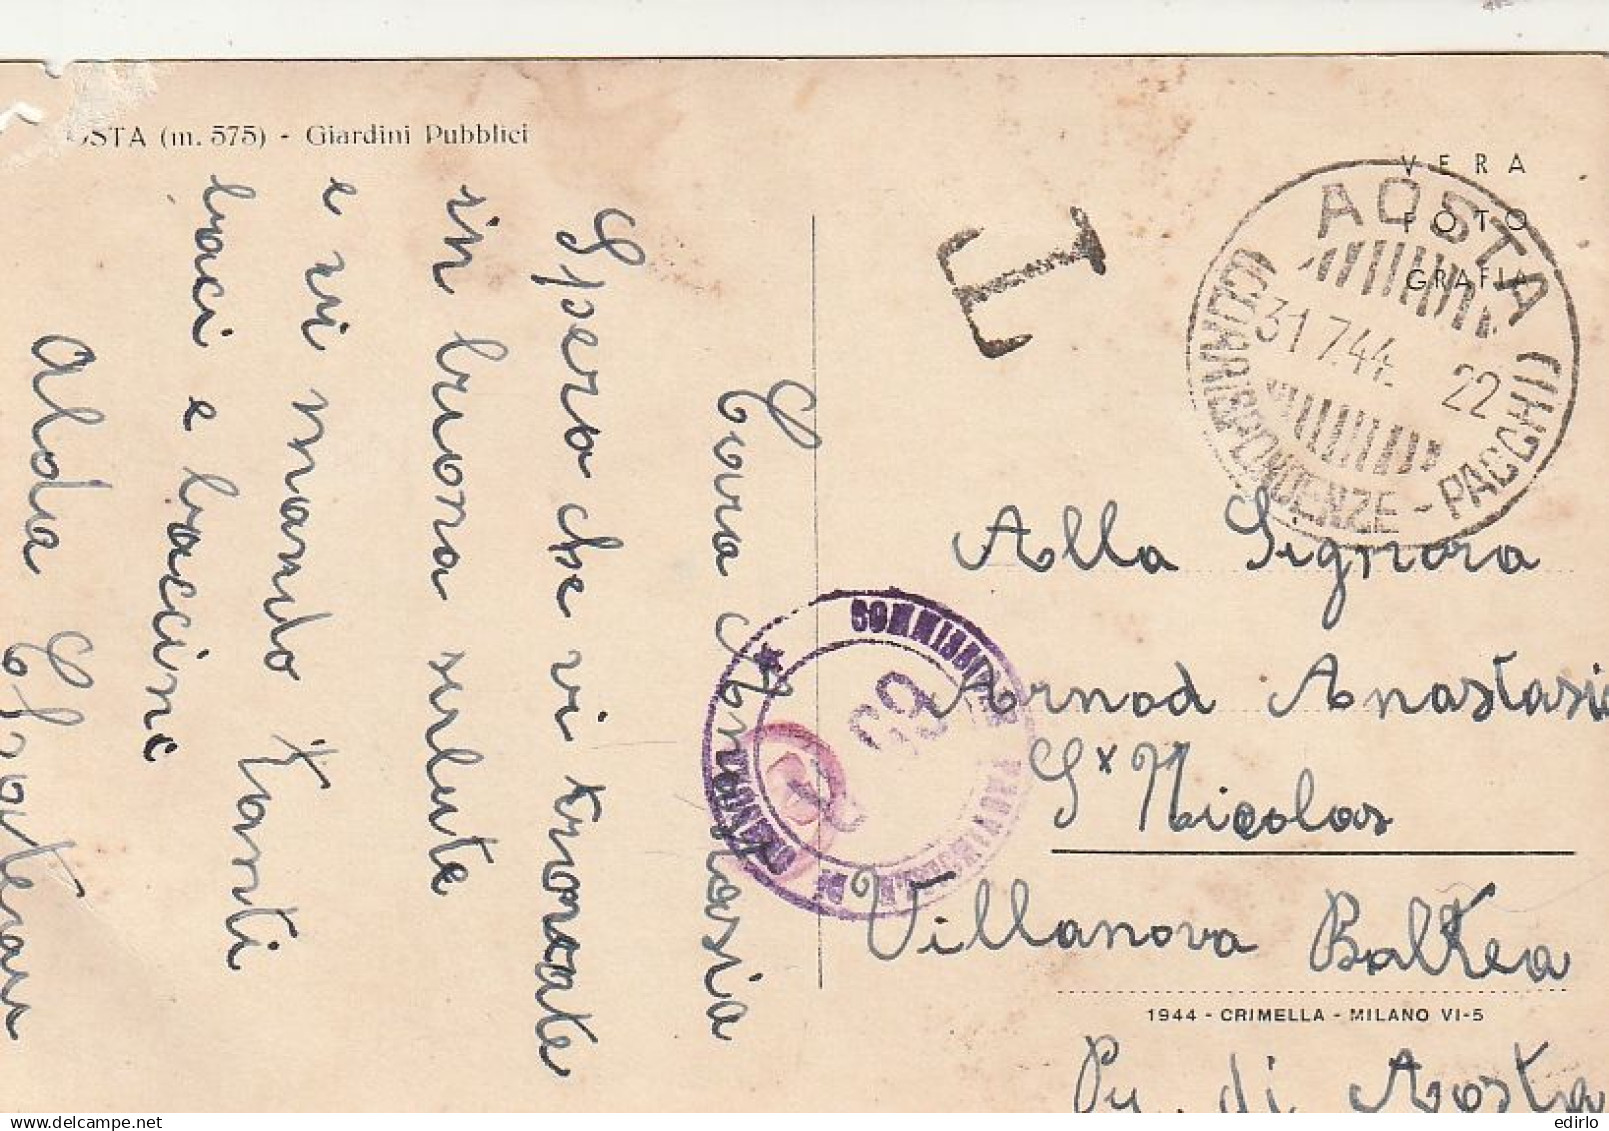 OSTA (m. 575) - Giardini Pubblici
Cara Anastasia
Spero che vi trovate
in buona salute
e vi mando tanti
baci e baccini
Alda
VERA
FOTO
GRAFIA
AOSTA
(CORRISPONDENZE - PACCHI)
31.7.44. 22
T
COMMISSIONE PROVINCIALE DI CENSURA
69
Alla Signora
Arnod Anastasia
St Nicolas
Villanova Baltea
1944 - CRIMELLA - MILANO VI-5
Pv. di Aosta
edirlo